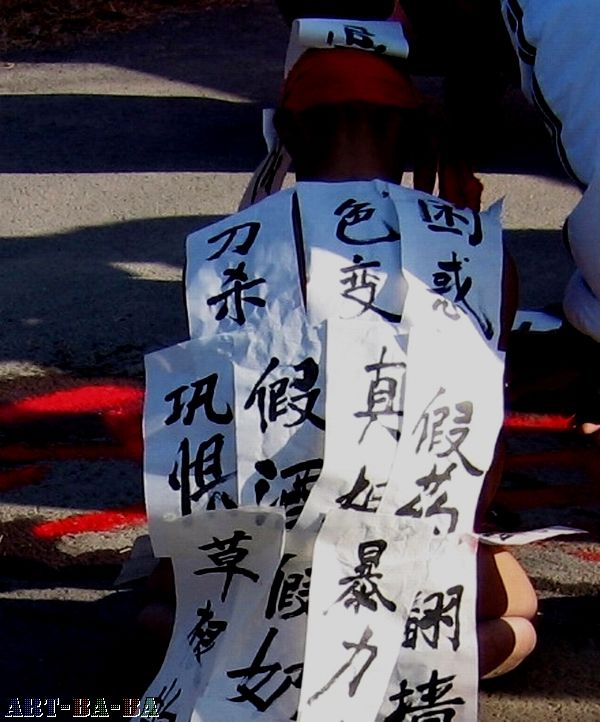 刀杀
色变
困惑
巩惧
假酒
真
假药
草
假奶
暴力
翻墙
ART-BA-BA